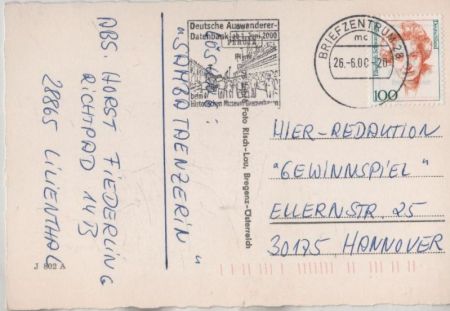 Deutsche Auswanderer-
Datenbank ab 1. Juni 2000
beim
Historischen Museum Bremerhaven
BRIEFZENTRUM 28
mc
26.-6.00.-20
Deutschland
100
LÖSUNG:
"SAMBATAENZERIN"
ABS. HORST FIEDERLING
RICHTPAD 14 B
28865 LILIENTHAL
J 802 A
Foto Risch-Lau, Bregenz-Österreich
HIER-REDAKTION
"GEWINNSPIEL"
ELLERNSTR. 25
30175 HANNOVER